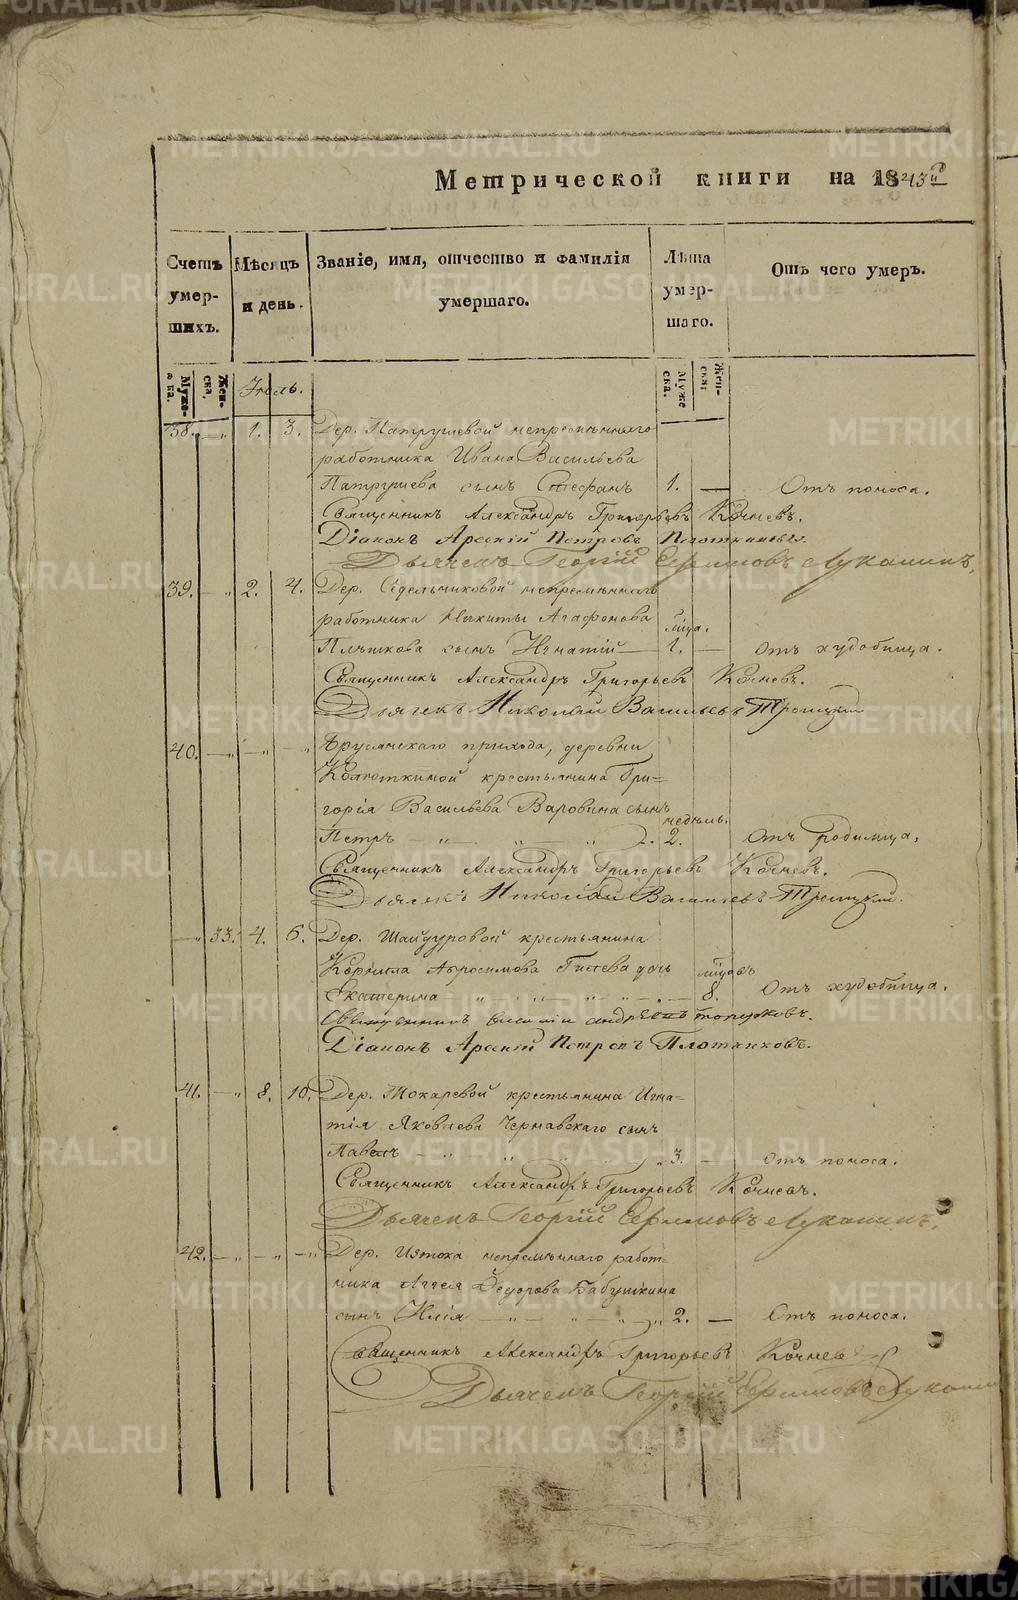 Метрической книги на 1843й
Счетъ умершихъ.
Мѣсяцъ и день.
Званіе, имя, отчество и фамилія умершаго.
Лѣта умершаго.
Отъ чего умеръ.
Мужеска.
Женска.
Іюль.
Мужеска.
Женска.
38. — „ 1. 3. Дер. Патрушевой непремѣннаго
работника Ивана Васильева
Патрушева сынъ Стефанъ 1. — Отъ поноса.
Священникъ Александръ Григорьевъ Кочневъ.
Діаконъ Арсеній Петровъ Плотниковъ.
Дьячекъ Георгій Ефимовъ Лукашинъ.
39. — „ 2. 4. Дер. Седельниковой непремѣннаго
работника Никиты Агафонова
Плѣшкова сынъ Игнатій — 1. — Отъ худобища.
Священникъ Александръ Григорьевъ Кочневъ.
Дьячекъ Николай Васильевъ Троицкій
40. — „ — „ — „ прихода, деревни
Колюткиной крестьянина Гри=
горія Васильева Варовина сынъ
недѣль.
Петръ „ „ „ 2. Отъ родимца.
Священникъ Александръ Григорьевъ Кочневъ.
Дьячекъ Николай Васильевъ Троицкій.
— „ 33. 4. 6. Дер. Шайдуровой крестьянина
Корнила Абросимова Гилева дочь
Екатерина „ „ „ „ — 8. Отъ худобища.
Священникъ Андреевъ Топорковъ.
Діаконъ Арсеній Петровъ Плотниковъ.
41. — „ 8. 10. Дер. Токаревой крестьянина Игна=
тія Яковлева Чернавскаго сынъ
Павелъ — „ „ „ 3. — Отъ поноса.
Священникъ Александръ Григорьевъ Кочневъ.
Дьячекъ Георгій Ефимовъ Лукашинъ.
42. — „ — „ — „ Дер. Истока непремѣннаго работ=
ника Аггея Ѳедорова Бабушкина
сынъ Илія — „ — „ — „ 2. — Отъ поноса.
Священникъ Александръ Григорьевъ Кочневъ
Дьячекъ Георгій Ефимовъ Лукашин
METRIKI.GASO-URAL.RU